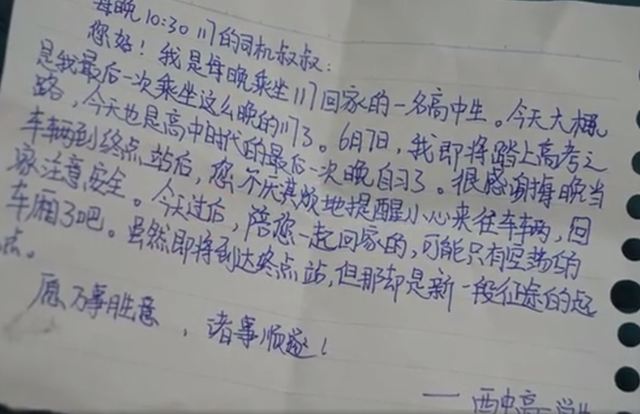 每晚10:30 117的司机叔叔：
您好！我是每晚乘坐117回家的一名高中生。今天大概
是我最后一次乘坐这么晚的117了。6月7日，我即将踏上高考之
路，今天也是高中时代的最后一次晚自习了。很感谢每晚当
车辆到终点站后，您不厌其烦地提醒小心来往车辆，回
家注意安全。今天过后，陪您一起回家的，可能只有空荡的
车厢了吧。虽然即将到达终点站，但那却是新一段征途的起
点。
愿万事胜意，诸事顺遂！
——西中高一学生